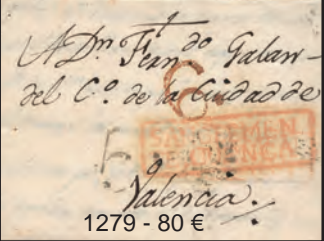 A Dn. Ferndo Galan
del Co. de la Ciudad de
6
SAN CLEMEN
CUENCA
5
Valencia.
1279 - 80 €